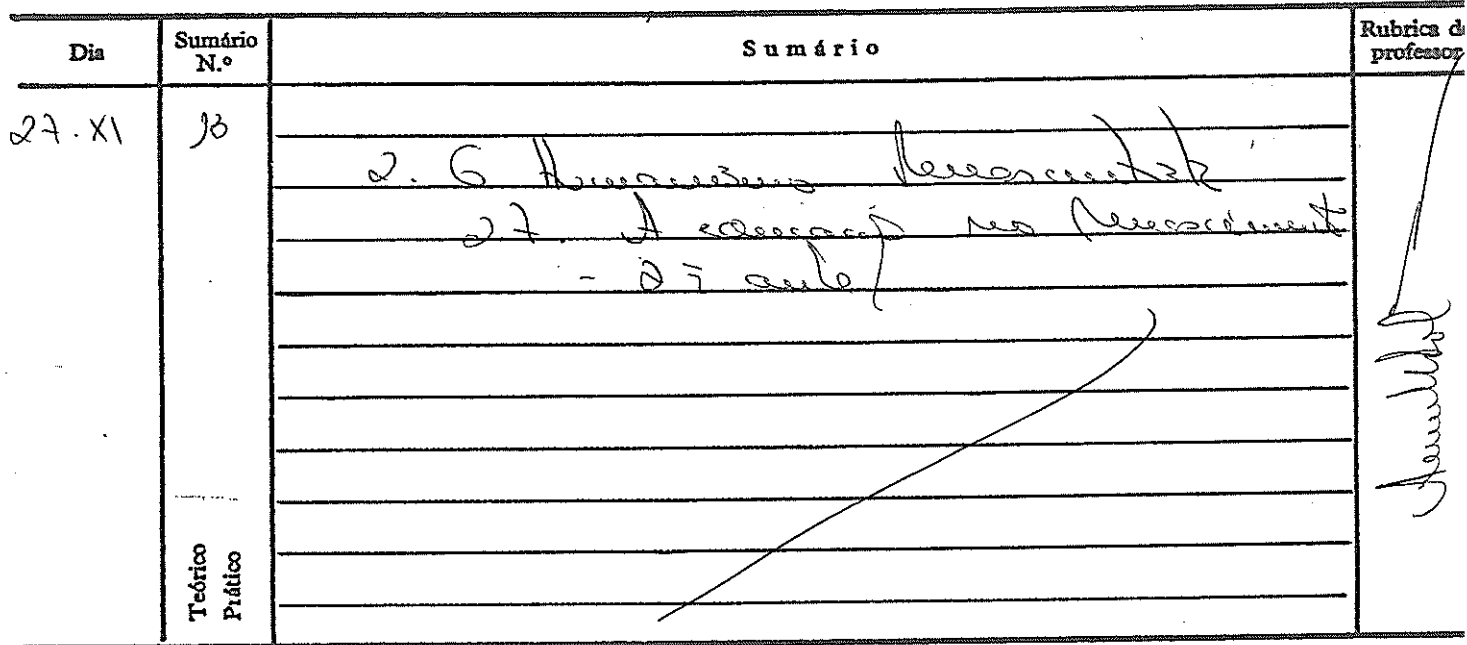 Dia
Sumário N.º
Sumário
Rubrica d
professor
27.XI
2. O Humanismo Renascentista
27. A educação no Renascimento
- 2ª aula
Teórico
Prático